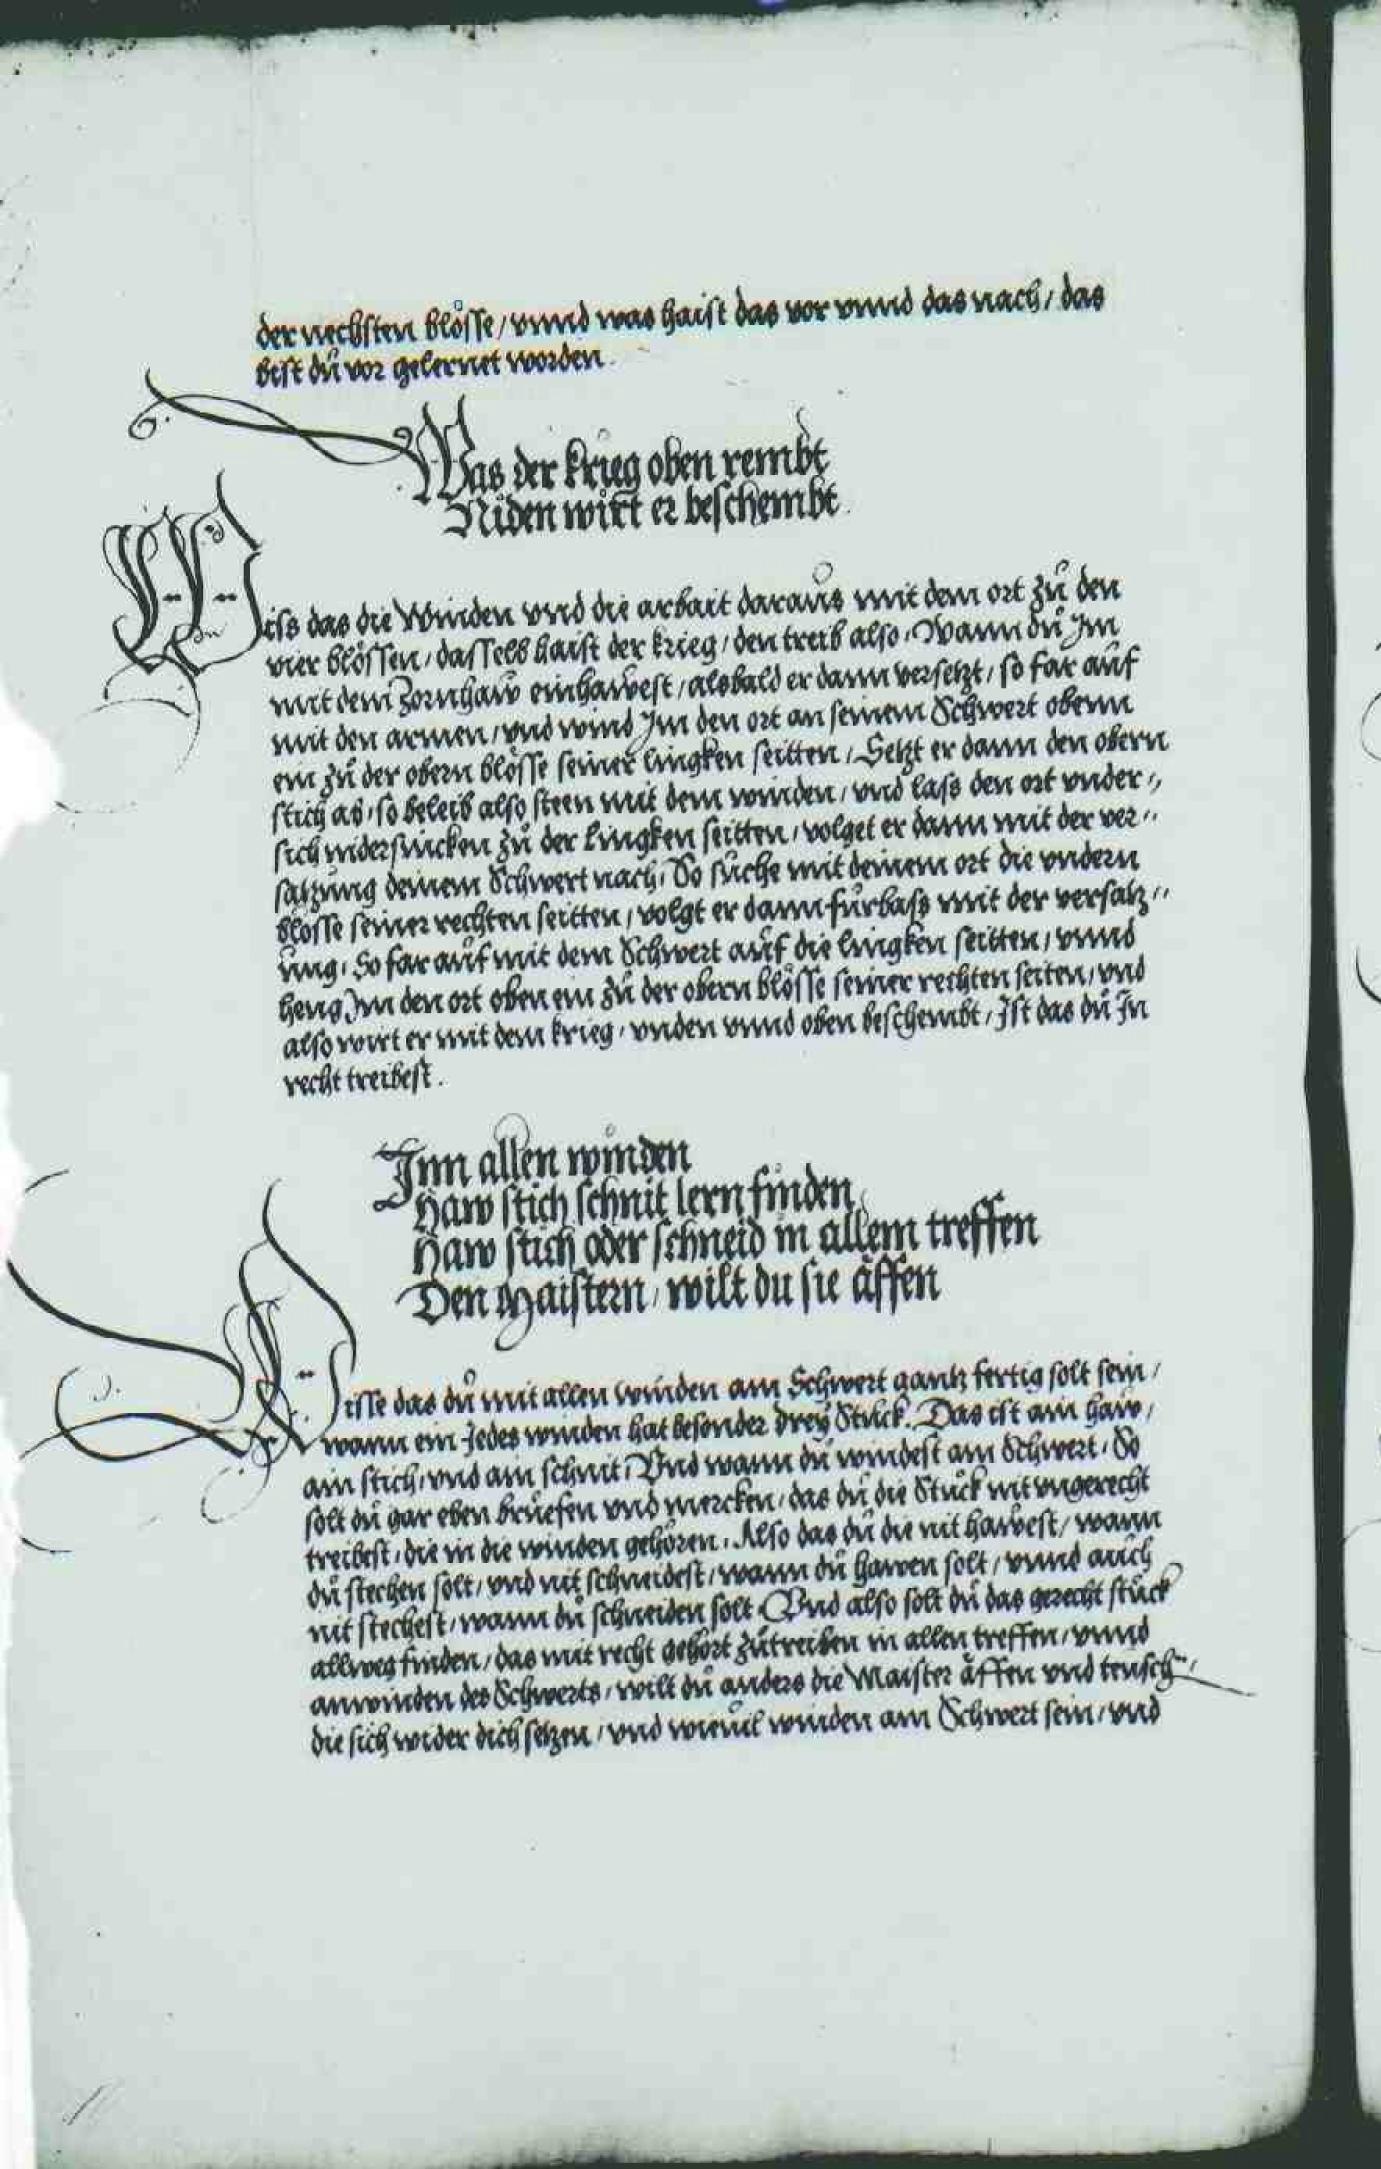 der nechsten blösse / vnnd was haist das vor vnnd das nach / das
bist dů vor gelernet worden.
Was der krieg oben rembt
Niden wirt er beschembt.
Wiss das die Winden vnd die arbait daraůs mit dem ort zů den
vier blössen / dasselb haist der krieg / den treib also / Wann dů Im
mit dem Zornhaw einhawest / alsbald er dann versetzt / so far aůf
mit den armen / vnd wind Im den ort an seinem Schwert obenn
ein zů der obern blösse seiner lingken seitten / Setzt er dann den obern
stich ab / so beleib also steen mit dem winden / vnd lass den ort vnder //
sich nidersincken zů der lingken seitten / volget er dann mit der ver //
satzůng deinem Schwert nach / So sůche mit deinem ort die vndern
blösse seiner rechten seitten / volgt er dann fůrbass mit der versatz //
ůng / So far aůf mit dem Schwert aůf die lingken seitten / vnnd
heng Im den ort oben ein zů der obern blösse seiner rechten seiten / vnd
also wirt er mit dem krieg / vnden vnnd oben beschembt / Ist das dů In
recht treibest.
Inn allen winden
Haw stich schnit lern finden
Haw stich oder schneid in allem treffen
Den Maistern / wilt du sie äffen
Wisse das dů mit allen winden am Schwert gantz fertig solt sein /
wann ein Jedes winden hat besonder dreÿ Stůck. Das ist ain haw /
ain stich / vnd ain schnit / Vnd wann dů windest am Schwert / So
solt dů gar eben brůefen vnd mercken / das dů die Stůck nit vngerecht
treibest / die in die winden gehören. Also das dů die nit hawest / wann
dů stechen solt / vnd nit schneidest / wann dů hawen solt / vnnd aůch
nit stechest / wann dů schneiden solt. Vnd also solt dů das gerecht stůck
allweg finden / das mit recht gehört zůtreiben in allen treffen / vnnd
anwinden des Schwerts / wilt dů anders die Maister äffen vnd teusch
die sich wider dich setzen / vnd wieůil winden am Schwert sein / vnd